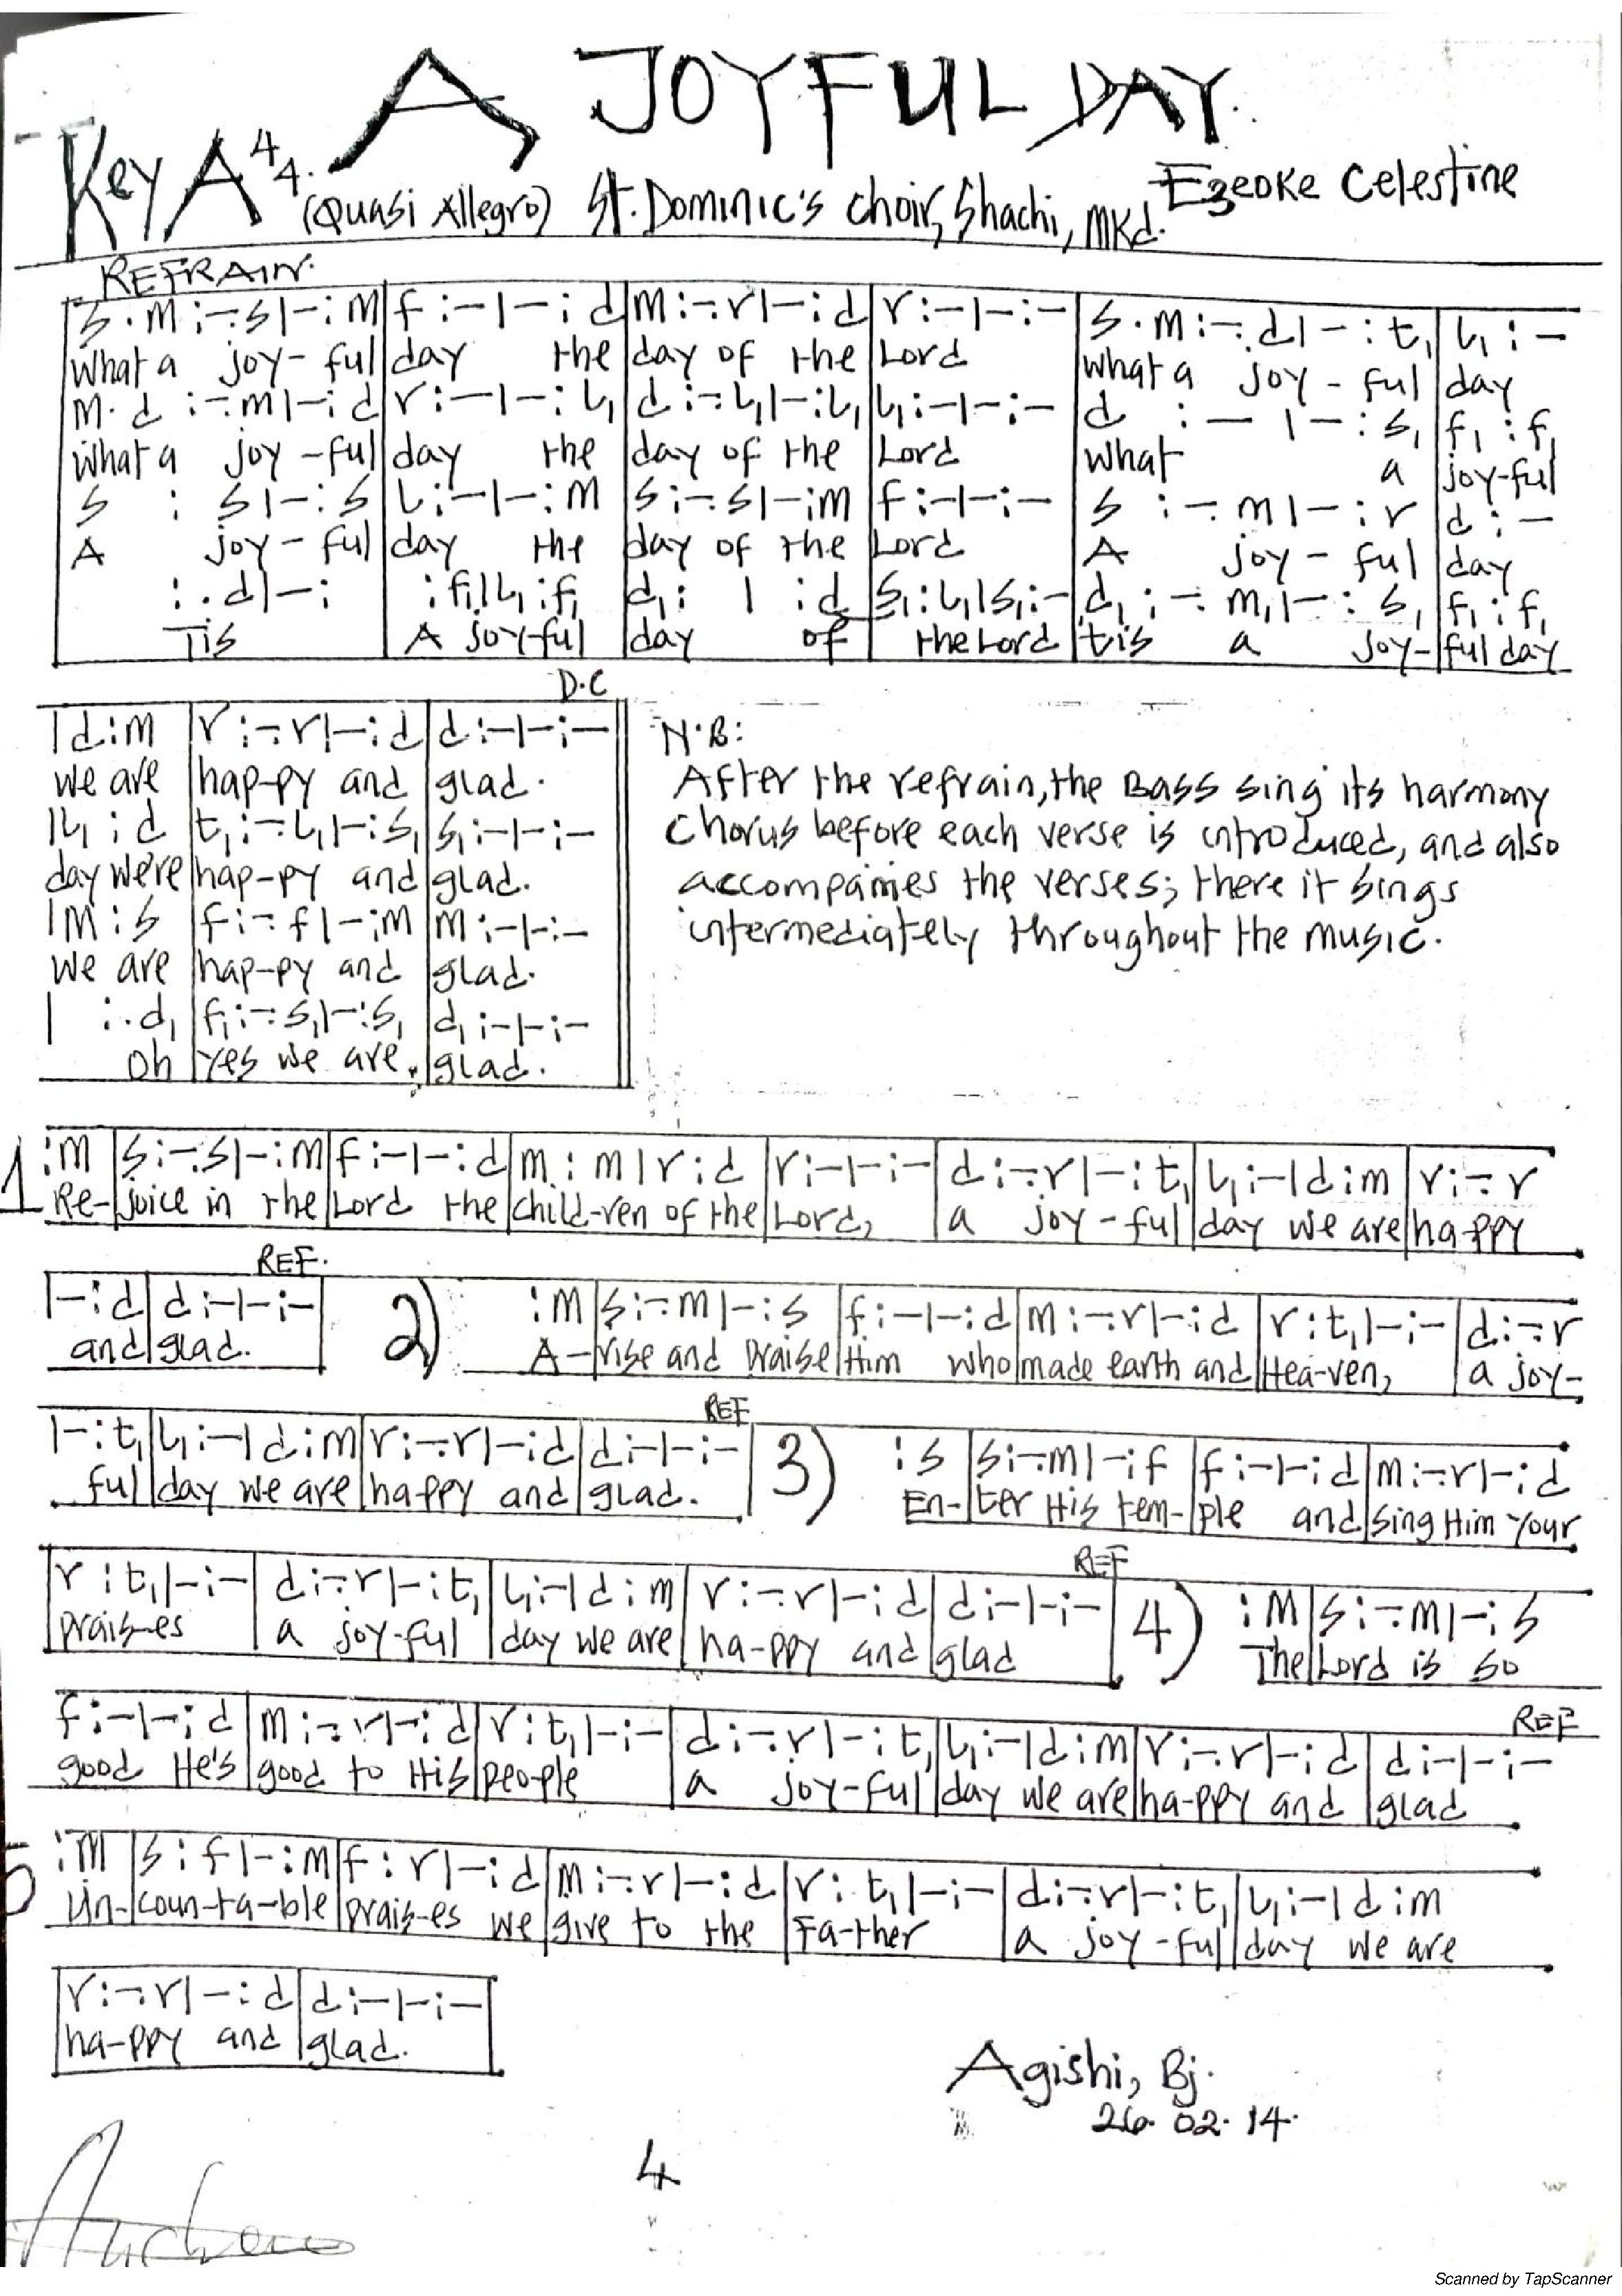 A JOYFUL DAY.
Key A 4/4.
(Quasi Allegro) St. Dominic's choir, Shachi, MKd. Ezeoke Celestine
REFRAIN.
s.m:-.s|-:m|f:-|-:d|m:-.r|-:d|r:-|-:-|s.m:-.d|-:t₁|l₁:-
What a joy-ful|day the|day of the|Lord|What a joy-ful|day
m.d:-.m|-:d|r:-|-:l₁|d:-.l₁|-:l₁|l₁:-|-:-|d:-|-:s₁|f₁:f₁
What a joy-ful|day the|day of the|Lord|What a|joy-ful
s:s|-:s|l:-|-:m|s:-.s|-:m|f:-|-:-|s:-.m|-:r|d:-
A joy-ful|day the|day of the|Lord|A joy-ful|day
:.d|-:|:f₁|l₁:f₁|d₁:|:d|s₁:l₁|s₁:-|d₁:-.m₁|-:s₁|f₁:f₁
Tis|A joy-ful|day of|the Lord|'tis a joy-|ful day
D.C
|d:m|r:-.r|-:d|d:-|-:-
we are|hap-py and|glad.
|l₁:d|t₁:-.l₁|-:s₁|s₁:-|-:-
day we're|hap-py and|glad.
|m:s|f:-.f|-:m|m:-|-:-
we are|hap-py and|glad.
|:.d₁|f₁:-.s₁|-:s₁|d₁:-|-:-
Oh|yes we are.|glad.
N.B:
After the refrain, the Bass sing its harmony
Chorus before each verse is introduced, and also
accompanies the verses; there it sings
intermediately throughout the music.
1 :m|s:-.s|-:m|f:-|-:d|m:m|r:d|r:-|-:-|d:-.r|-:t₁|l₁:-|d:m|r:-.r
Re-|joice in the|Lord the|child-ren of the|Lord,|a joy-ful|day we are|ha-ppy
REF.
|-:d|d:-|-:-| 2) :m|s:-.m|-:s|f:-|-:d|m:-.r|-:d|r:t₁|-:-|d:-.r
and|glad. A-|rise and praise|Him who|made earth and|Hea-ven,|a joy-
REF
|-:t₁|l₁:-|d:m|r:-.r|-:d|d:-|-:-| 3) :s|s:-.m|-:f|f:-|-:d|m:-.r|-:d
ful|day we are|ha-ppy and|glad. En-|ter His tem-|ple and|sing Him your
REF
r:t₁|-:-|d:-.r|-:t₁|l₁:-|d:m|r:-.r|-:d|d:-|-:-| 4) :m|s:-.m|-:s
prais-es|a joy-ful|day we are|ha-ppy and|glad The|Lord is so
REF
f:-|-:d|m:-.r|-:d|r:t₁|-:-|d:-.r|-:t₁|l₁:-|d:m|r:-.r|-:d|d:-|-:-
good He's|good to His|peo-ple|a joy-ful|day we are|ha-ppy and|glad
5 :m|s:f|-:m|f:r|-:d|m:-.r|-:d|r:t₁|-:-|d:-.r|-:t₁|l₁:-|d:m
Un-|coun-ta-ble|prais-es we|give to the|Fa-ther|a joy-ful|day we are
r:-.r|-:d|d:-|-:-
ha-ppy and|glad.
Agishi, Bj.
26.02.14.
4
Scanned by TapScanner